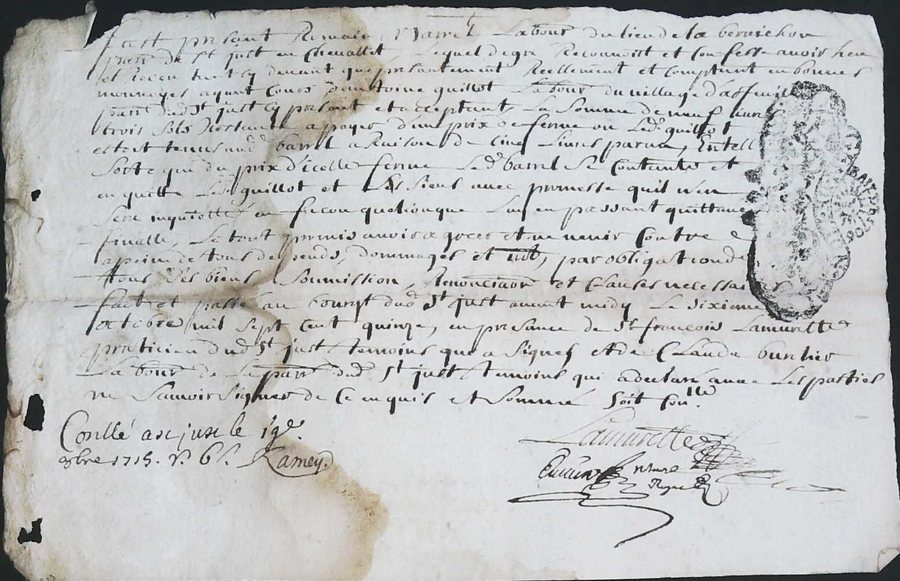 Fut présent Romain Barrel Labour du lieu de la
parr de St just en Chevallet Lequel de gré Reconnoist et Confesse avoir heu
et Receu tout cy devant que présantement Reellement et Comptant en bonnes
monnoyes ayant Cours Guillot Labour du village
parr dud St just cy présant et acceptant La Somme de neuf
trois Sols Restante a payer d'un prix de ferme ou Led Guillot
estoit tenu aud barrel a Raison de Cinq Livres par an, Entell
Sorte que du prix d'icelle ferme Led barrel Se Contente et
en quitte Led Guillot et Les Siens avec promesse quil nen
Sera inquietté en facon quelconque Luy en passant quittance
finalle, Le tout promis avoir a gréé et ne venir Contre
a peine de tous despends, dommages et int, par obligation de
tous Ses biens Soumission, Renonciaon et Clauses necessai
fait et passé au bourg dud St just avant midy Le dixieme
octobre mil sept cent quinze, en presance de Sr françois Lamurette
praticien dud St just temoins qui a Signé et de Claude
Labour de La parr dud St just, temoins qui a declaré avec Les parties
ne Scavoir Signer de Ce enquis et Sommé Soit Con.lle
Lamurette
Conllé a st just le 19e
8bre 1715. r. 6s. Ramey.